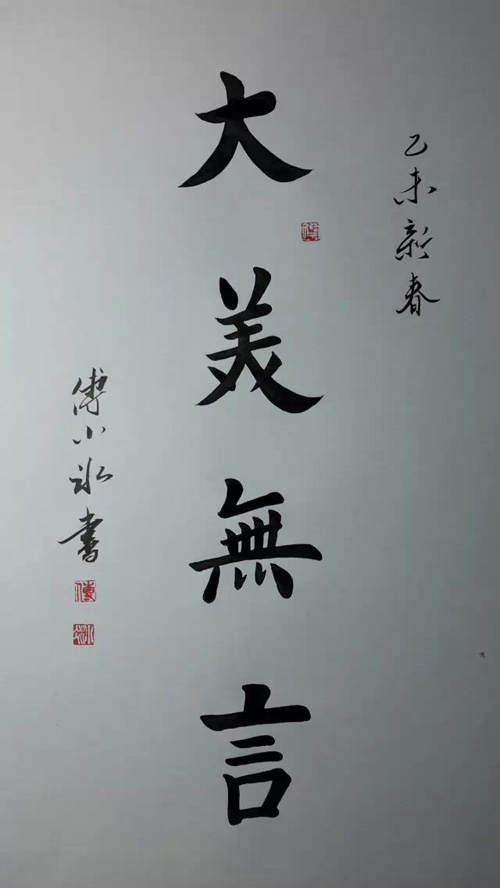 乙未新春
大美無言
傅小冰書